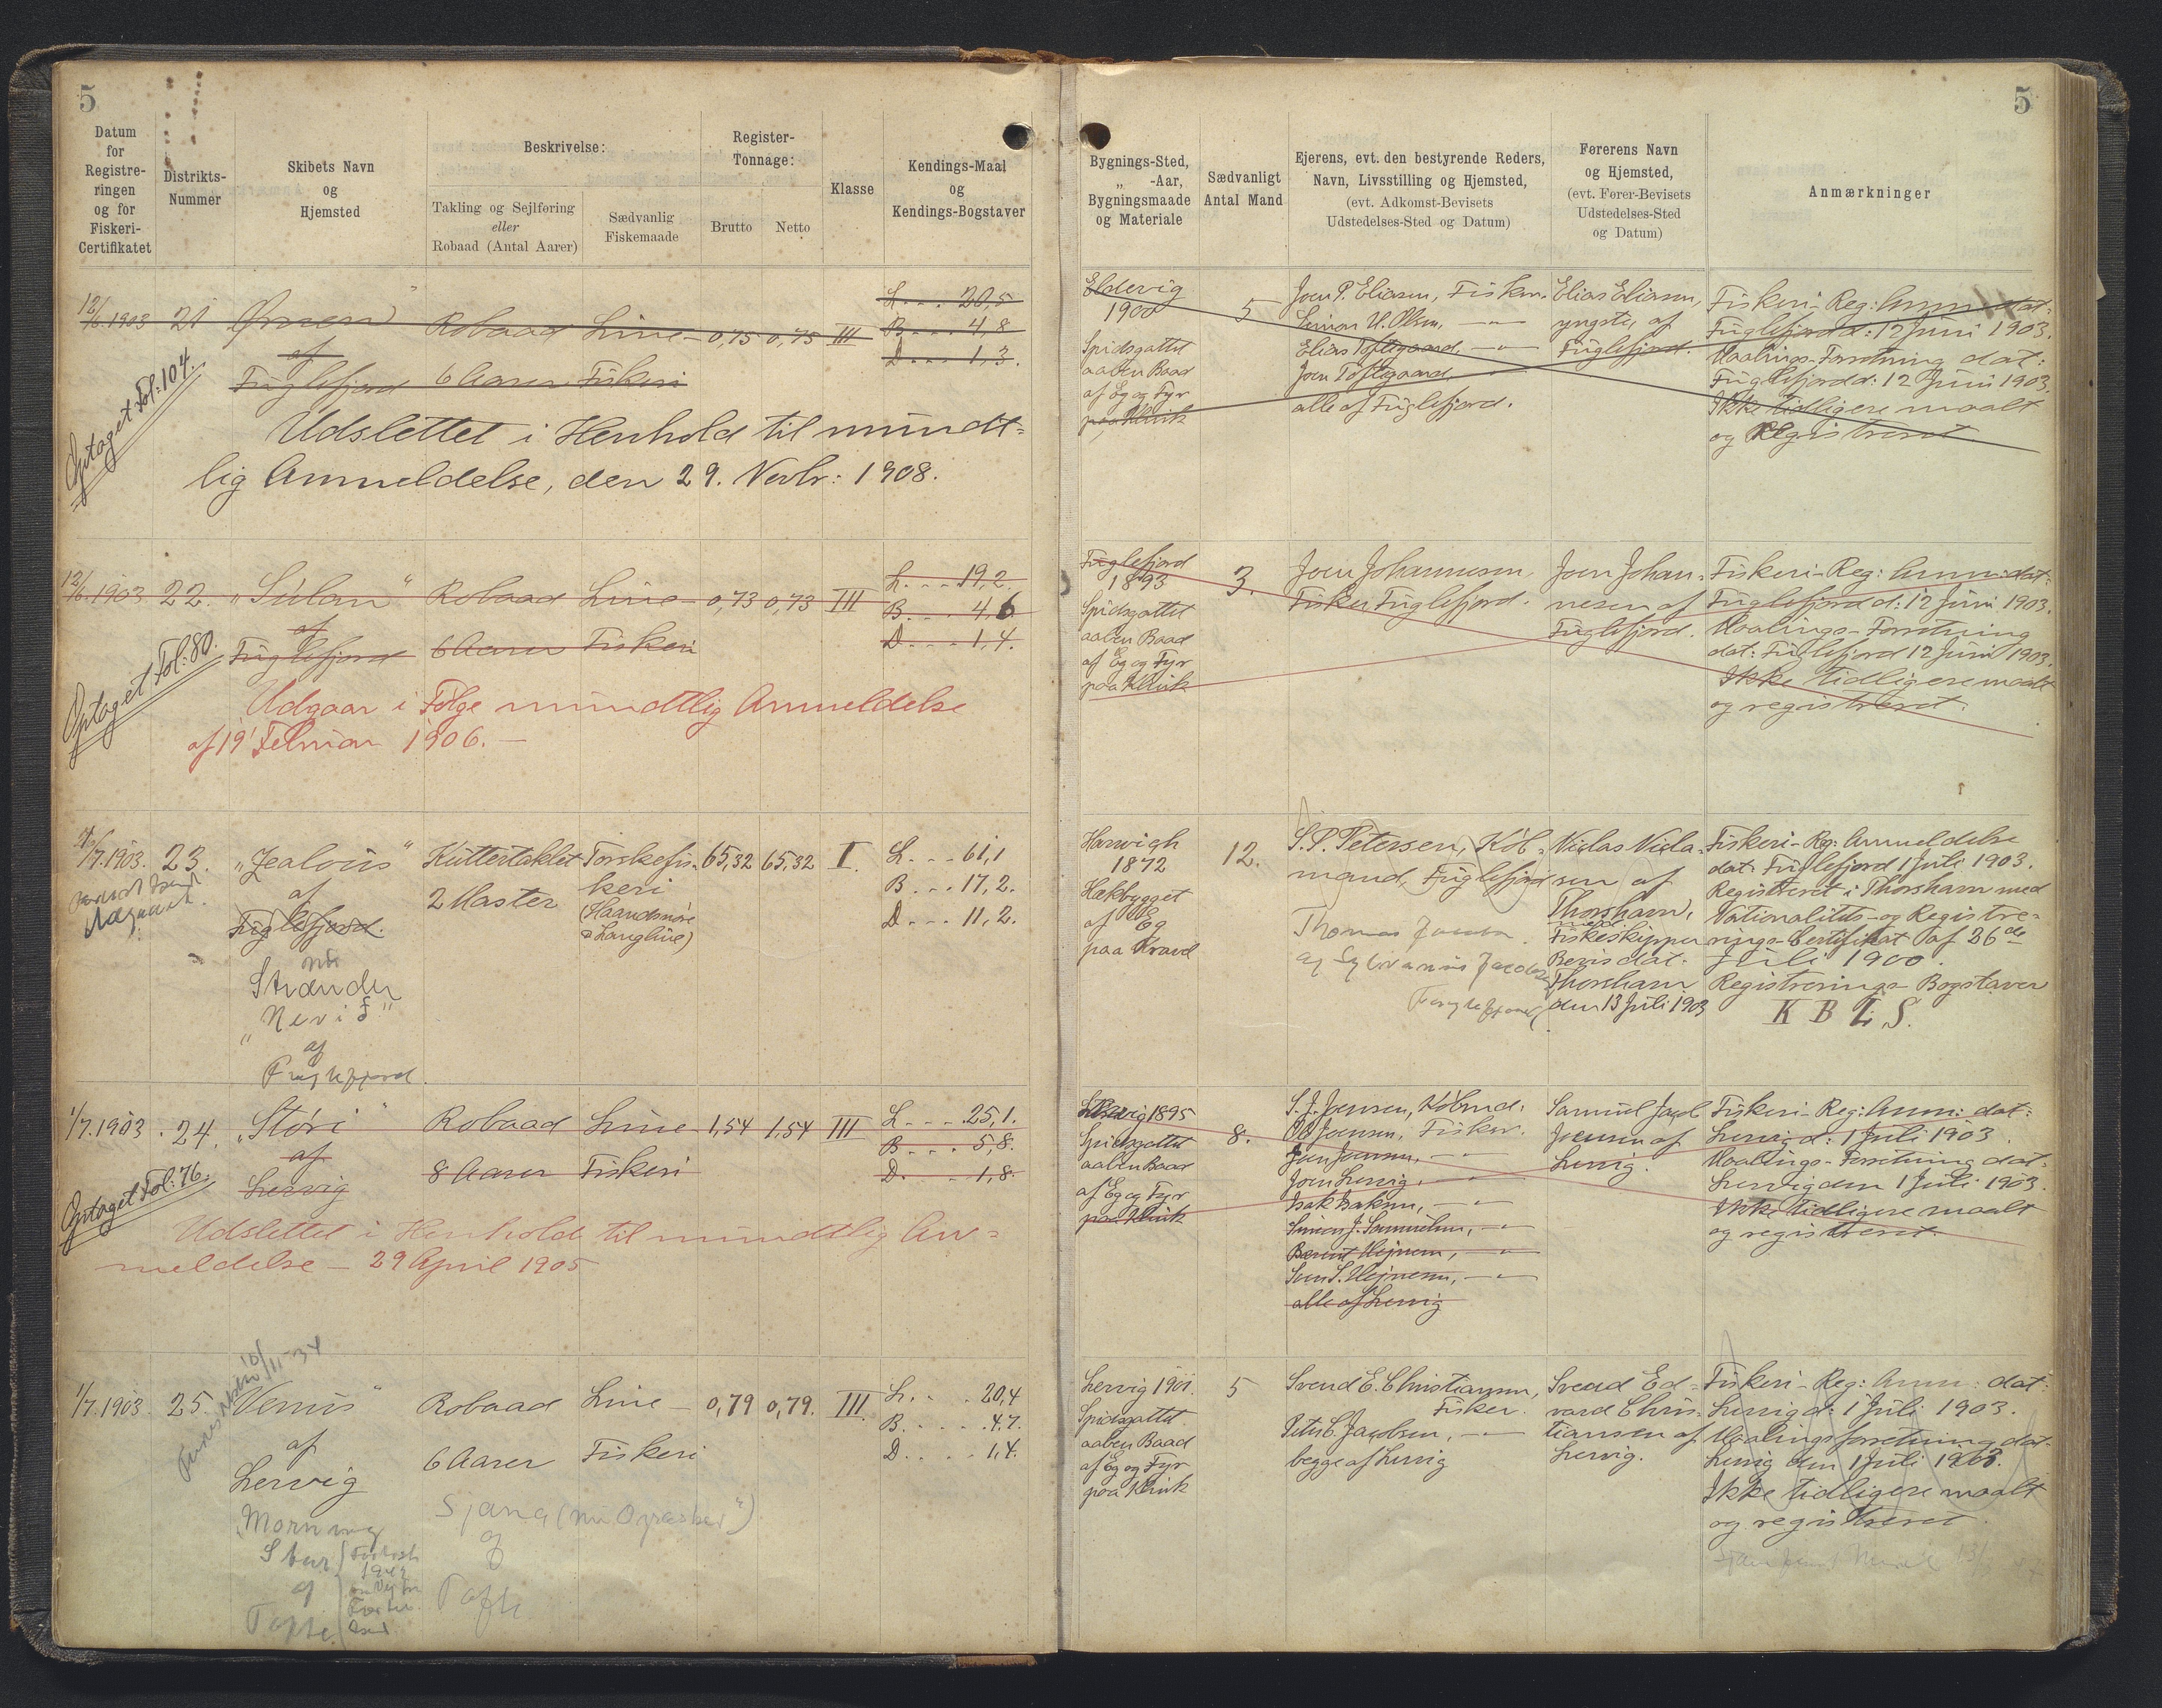 5
Datum
for
Registre-
ringen
og for
Fiskeri-
Certifikatet
Distrikts-
Nummer
Skibets Navn
og
Hjemsted
Beskrivelse:
Takling og Sejlføring
eller
Robaad (Antal Aarer)
Sædvanlig
Fiskemaade
Register-
Tonnage:
Brutto Netto
Klasse
Kendings-Maal
og
Kendings-Bogstaver
12/6.1903 21 Ørnen" Robaad Line- 0,75 0,75 III
L... 20,5
B... 4,8
D... 1,3.
af
Fuglefjord 6 Aarer Fiskeri
Optaget Fol: 104.
Udslettet i Henhold til mundt=
lig Anmeldelse, den 29. Novbr: 1908.
12/6.1903 22. "Súlan" Robaad Line- 0,73 0,73 III
L... 19,2.
B... 4,6
D... 1,4.
af
Fuglefjord 6 Aarer Fiskeri
Optaget Fol: 80.
Udgaar i Følge mundtlig Anmeldelse
af 19 Februar 1906.-
/7.1903. 23. "Jealous" Kuttertaklet Torskefis- 65,32 65,32 I.
L... 61,1
B... 17,2.
D... 11,2.
af
Fuglefjord.
2 Master
keri
(Haandsnøre
& Langline)
Udgaaet.
nu
Strænder
"Nevið"
af
Fuglefjord.
1/7.1903. 24. "Stóri" Robaad Line 1,54 1,54 III
L... 25,1.
B... 5,8.
D... 1,8.
af
Lervig
8 Aarer Fiskeri
Optaget Fol: 76.
Udslettet i Henhold til mundtlig An=
meldelse - 29 April 1905
10/11-34
1/7.1903. 25. "Venus" Robaad Line- 0,79 0,79. III.
L... 20,4
B... 4,7.
D... 1,4.
af
Lervig
6 Aarer Fiskeri
"Morning
Star
af
Tofte.
Sjana (nu
af
Tofte
5
Bygnings-Sted,
„ -Aar,
Bygningsmaade
og Materiale
Sædvanligt
Antal Mand
Ejerens, evt. den bestyrende Reders,
Navn, Livsstilling og Hjemsted,
(evt. Adkomst-Bevisets
Udstedelses-Sted og Datum)
Førerens Navn
og Hjemsted,
(evt. Fører-Bevisets
Udstedelses-Sted
og Datum)
Anmærkninger
Eldevig
1900
Spidsgattet
aaben Baad
af Eg og Fyr
paa Klink
5
Joen P. Eliasen, Fisker.
Simon U. Olsen, -"-
Elias Toftegaard, -"-
Joen Toftegaard,
alle af Fuglefjord.
Elias Eliasen,
yngste, af
Fuglefjord.
Fiskeri-Reg: Anm: dat:
Fuglefjord d: 12 Juni 1903.
Maalings-Forretning dat:
Fuglefjord d: 12 Juni 1903.
Ikke tidligere maalt
og Registreret
Fuglefjord
1893
Spidsgattet
aaben Baad
af Eg og Fyr
paa Klink
3.
Joen Johannesen,
Fisker, Fuglefjord.
Joen Johan-
nesen af
Fuglefjord.
Fiskeri-Reg: Anm: dat:
Fuglefjord d: 12 Juni 1903.
Maalings-Forretning
dat: Fuglefjord 12 Juni 1903.
Ikke tidligere maalt
og registreret.
Harwigh
1872
Hækbygget
af Eg
paa Kravel
12.
S. P. Petersen, Køb-
mand, Fuglefjord
Thomas Jacobsen
og Sylvanus Jacobsen
Fuglefjord
Niclas Nicla-
sen af
Thorshavn,
med
Fiskeskipper
Bevis dat:
Thorshavn
den 13 Juli 1903
Fiskeri-Reg: Anmeldelse
dat: Fuglefjord 1 Juli 1903.
Registreret i Thorshavn med
Nationalitets- og Registre-
rings-Certifikat af 26de
Juli 1900.
Registrerings-Bogstaver
K B L S.
Lervig 1895
Spidsgattet
aaben Baad
af Eg og Fyr
paa Klink
8.
S. J. Joensen, Købmd:
Ole Joensen, Fisker.
Joen Joensen, -"-
Joen Lervig, -"-
Isak Isaksen, -"-
Simon J. Samuelsen, -"-
Berint Højnesen, -"-
Joen S. Højnesen, -"-
alle af Lervig
Samuel Jacob
Joensen af
Lervig.
Fiskeri-Reg: Anm: dat:
Lervig d: 1 Juli 1903.
Maalings-Forretning dat:
Lervig den 1 Juli 1903.
Ikke tidligere maalt
og registreret.
Lervig 1901.
Spidsgattet
aaben Baad
af Eg og Fyr
paa Klink
5
Svend E. Christiansen,
Fisker.
Peter C. Jacobsen, -"-
begge af Lervig
Svend Ed-
vard Chris-
tiansen af
Lervig.
Fiskeri-Reg: Anm: dat:
Lervig d: 1 Juli 1903.
Maalingsforretning dat:
Lervig den 1 Juli 1903.
Ikke tidligere maalt
og registreret.